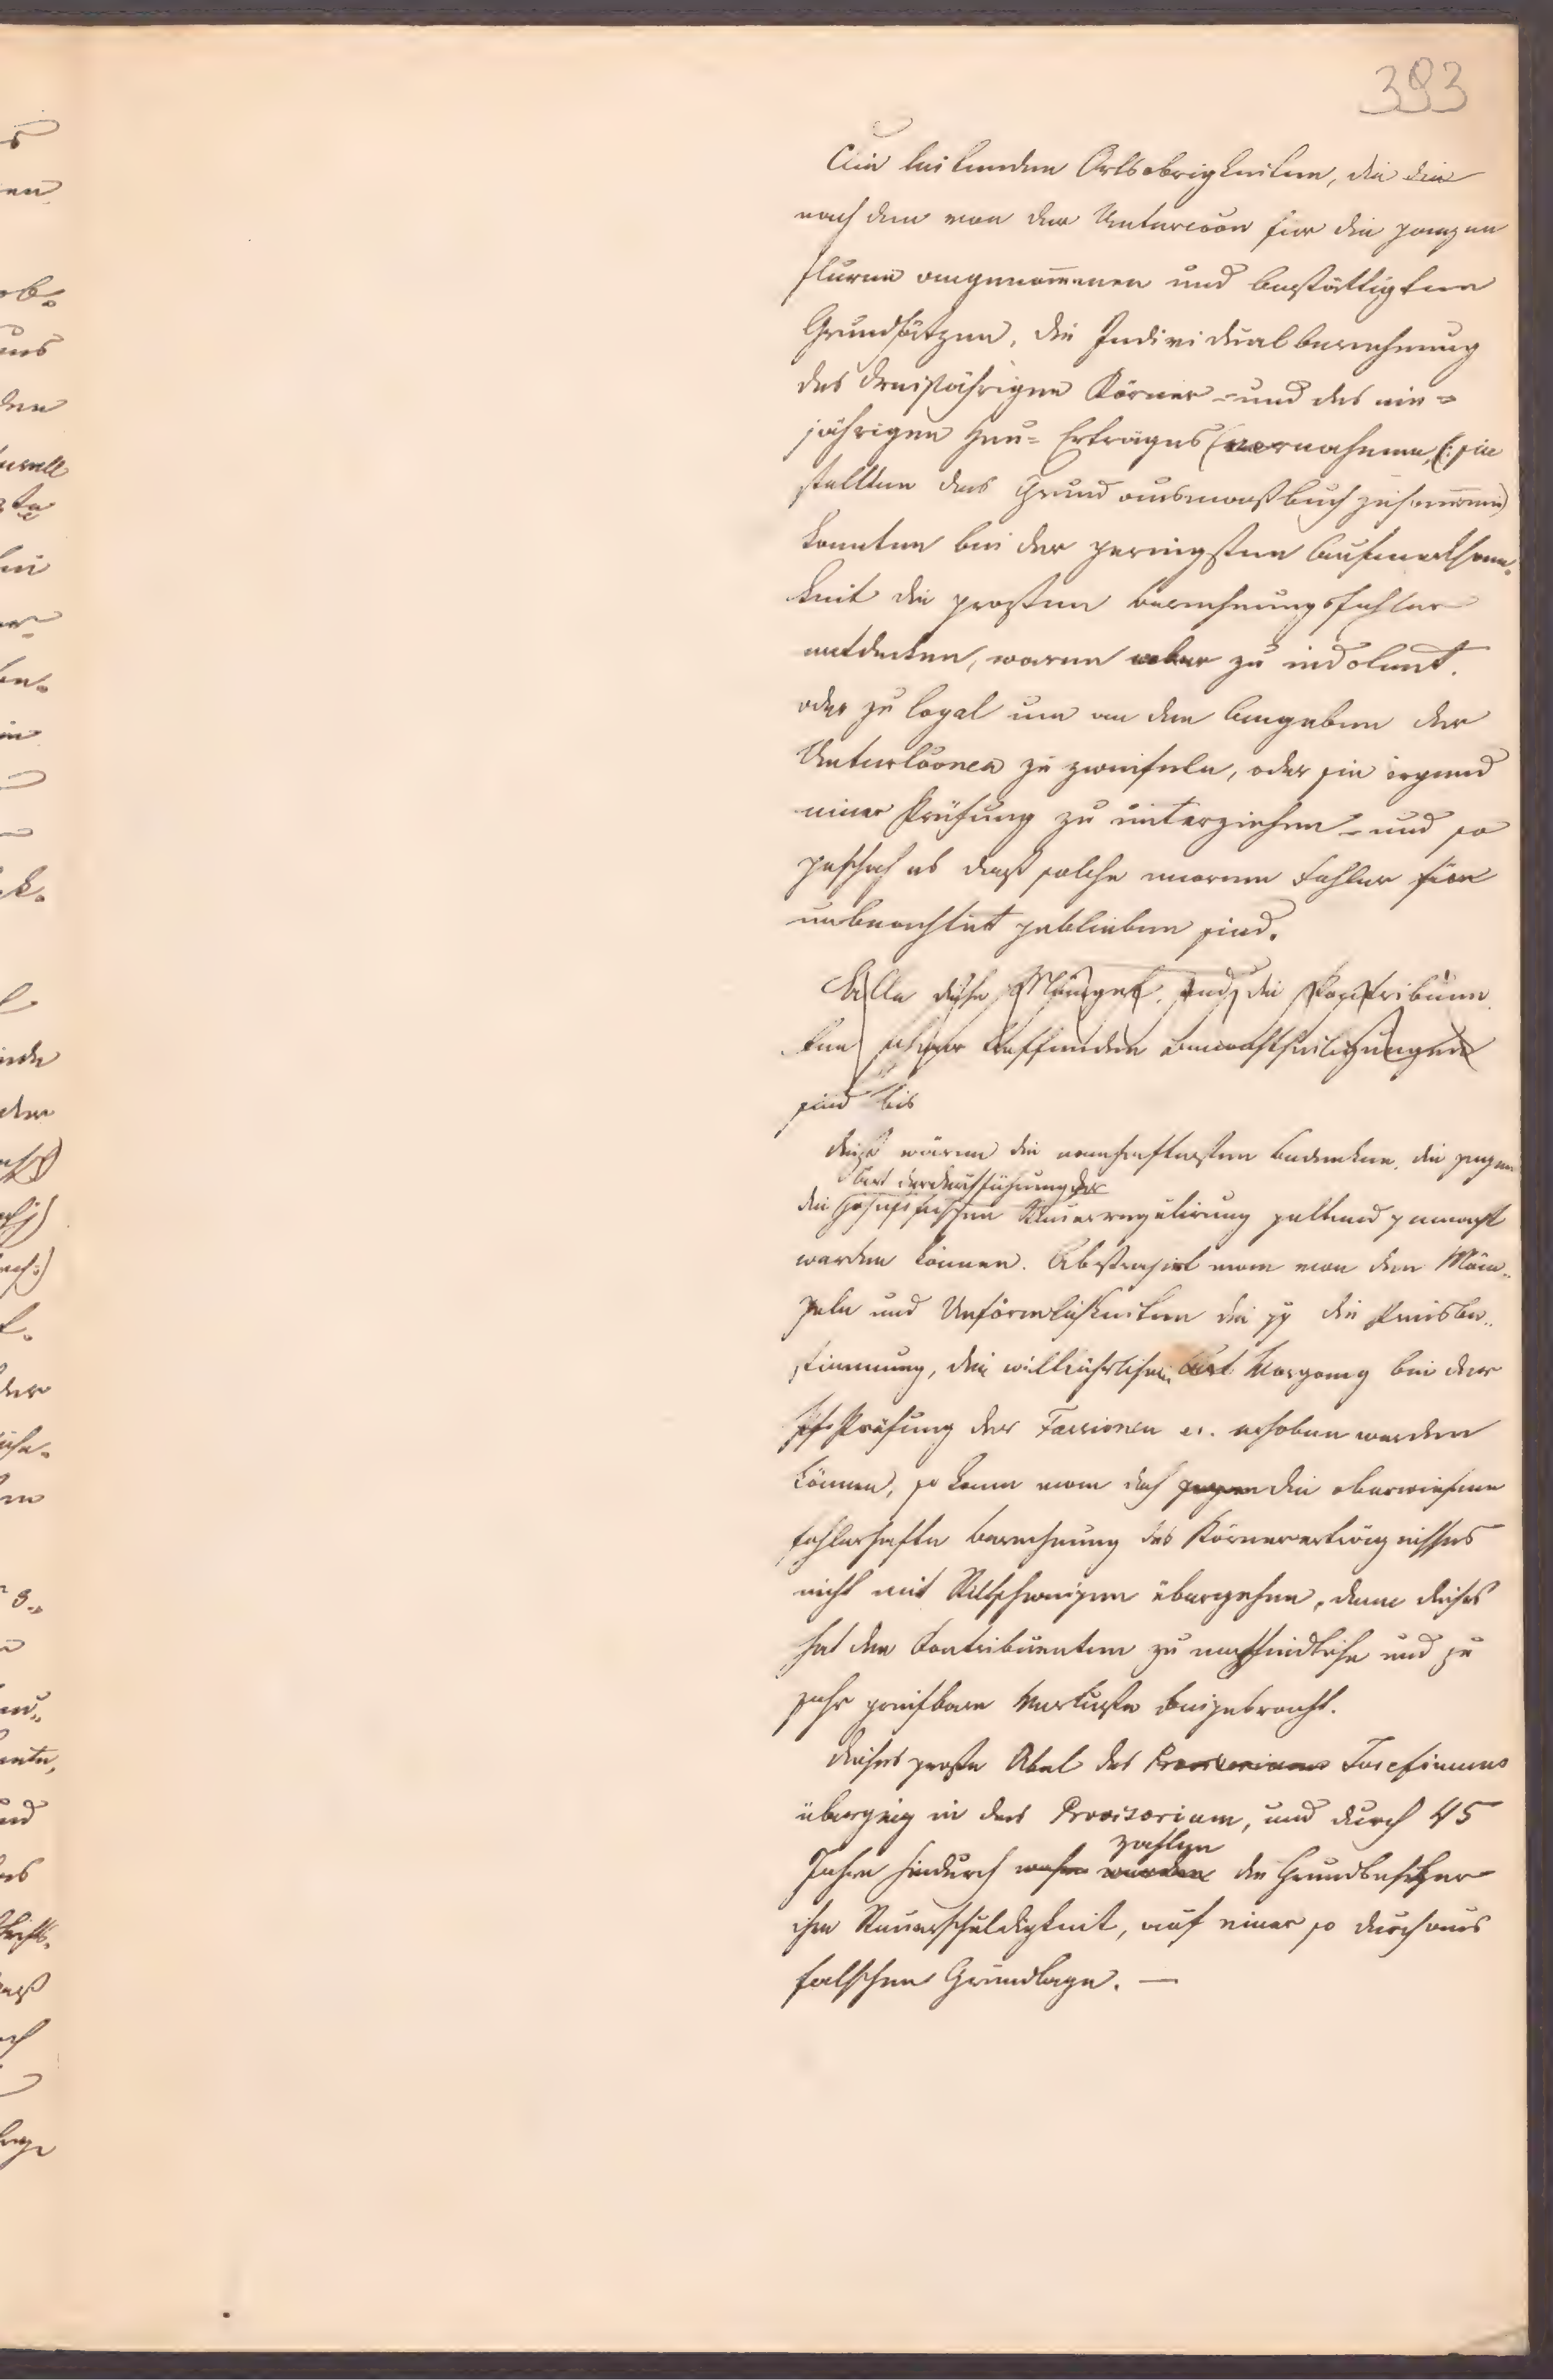 393
Die leitenden Ortsobrigkeiten, die die
nach den von der Untercoon für die ganzen
fluren angenom̅enen und bestättigten
Grundsätzen, die Individualberechnung
des dreijährigen Körner - und des ein=
jährigen Heu= Ertrages vornahmen, (: sie
stellten das Grundausmaßbuch zusam̅en)
konnten bei der geringsten Aufmerksam-
keit die großten berechnungsfehler
entdecken, waren aber zu indolent.
oder zu loyal um an den Angaben der
Untercoonen zu zweifeln, oder sie irgend
einer Prüfung zu unterziehen - und so
geschah es daß solche enorme Fehler
unbeachtet geblieben sind.
Alle diese Mängel, und die Contribuen
ten schwer treffenden benachtheiligungen
sind bis
dieß wären die namhaftesten bedenken, die gegen
Art der Ausführung der
die josefinischen Steuerregulirung geltend gemacht
werden können. Abstrahirt man von den Män-
geln und Unförmlichkeiten die gg die Preisbe-
stimmung, den willkührlichen Vorgang bei der
Prüfung der Fassionen etc. erhoben werden
können, so kann man doch gegen die oberwiesene
fehlerhafte berechnung des Körnererträgnisses
nicht mit Stillschweigen übergehen, denn dieses
hat den Contribuenten zu empfindliche und zu
sehr greifbare Verluste beigebracht.
Dieses große Übel des Provisoriums Josefinums
übergieng in das Provisorium, und durch 45
zahlten
Jahre hindurch wurden die Grundbesitzer
ihre Steuerschuldigkeit, auf einer so durchaus
falschen Grundlage. —